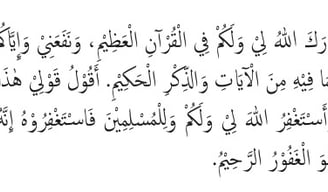 رَكَ اللهُ لِيْ وَلَكُمْ فِي الْقُرْآنِ الْعَظِيْمِ، وَنَفَعَنِيْ وَإِيَّاكُ
ا فِيْهِ مِنَ الْآيَاتِ وَالذِّكْرِ الْحَكِيْمِ. أَقُوْلُ قَوْلِيْ هٰذَ
أَسْتَغْفِرُ اللهَ لِيْ وَلَكُمْ وَلِلْمُسْلِمِيْنَ فَاسْتَغْفِرُوْهُ إِنَّهُ
وَ الْغَفُوْرُ الرَّحِيْمُ.